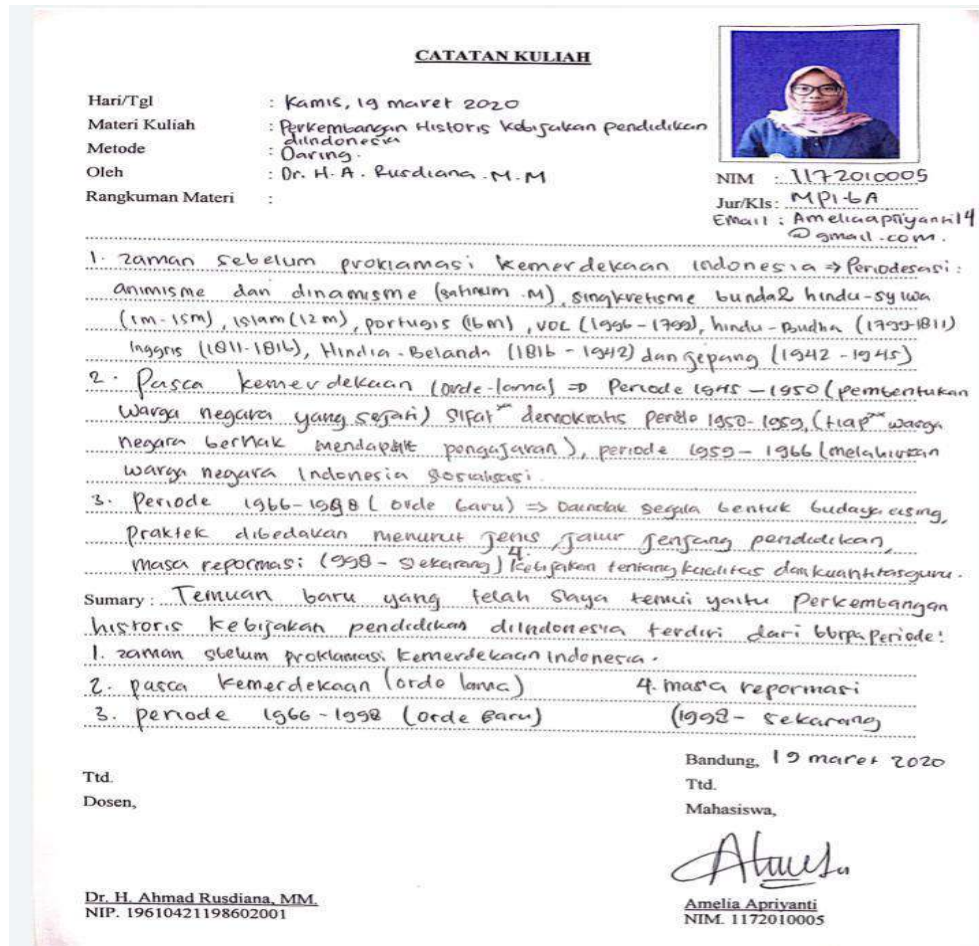 CATATAN KULIAH
Hari/Tgl : Kamis, 19 maret 2020
Materi Kuliah : Perkembangan Historis kebijakan pendidikan
diIndonesia
Metode : Daring.
Oleh : Dr. H. A. Rusdiana. M.M
Rangkuman Materi :
NIM : 1172010005
Jur/Kls : MPI-6A
Email : Ameliaapriyanti14
@gmail.com.
1. zaman sebelum proklamasi kemerdekaan indonesia => Periodesasi:
animisme dan dinamisme , singkretisme bunda2 hindu-syiwa
(1m-15m), islam (12 m), portugis (16m), VOC (1996-1799), hindu-Budha (1799-1811)
Inggris (1811-1816), Hindia-Belanda (1816 - 1942) dan jepang (1942 - 1945)
2. Pasca kemerdekaan (orde-lama) => Periode 1945 - 1950 (pembentukan
warga negara yang sejati) sifat demokratis 1950-1959, (tiap warga
negara berhak pengajaran), periode 1959 - 1966 (melahirkan
warga negara Indonesia sosialisasi.
3. Periode 1966-1998 (orde baru) => segala bentuk budaya asing,
praktek dibedakan menurut jenis, jalur jenjang pendidikan,
4.
masa repormasi (1998 - sekarang) kebijakan tentang kualitas dan kuantitas guru.
Sumary : Temuan baru yang telah saya temui yaitu Perkembangan
historis kebijakan pendidikan diIndonesia terdiri dari bbrpa Periode:
1. zaman sbelum proklamasi kemerdekaan indonesia.
2. pasca kemerdekaan (orde lama) 4. masa repormasi
3. periode 1966-1998 (orde Baru) (1998 - sekarang
Bandung, 19 maret 2020
Ttd. Ttd.
Dosen, Mahasiswa,
Dr. H. Ahmad Rusdiana, MM. Amelia Apriyanti
NIP. 19610421198602001 NIM. 1172010005